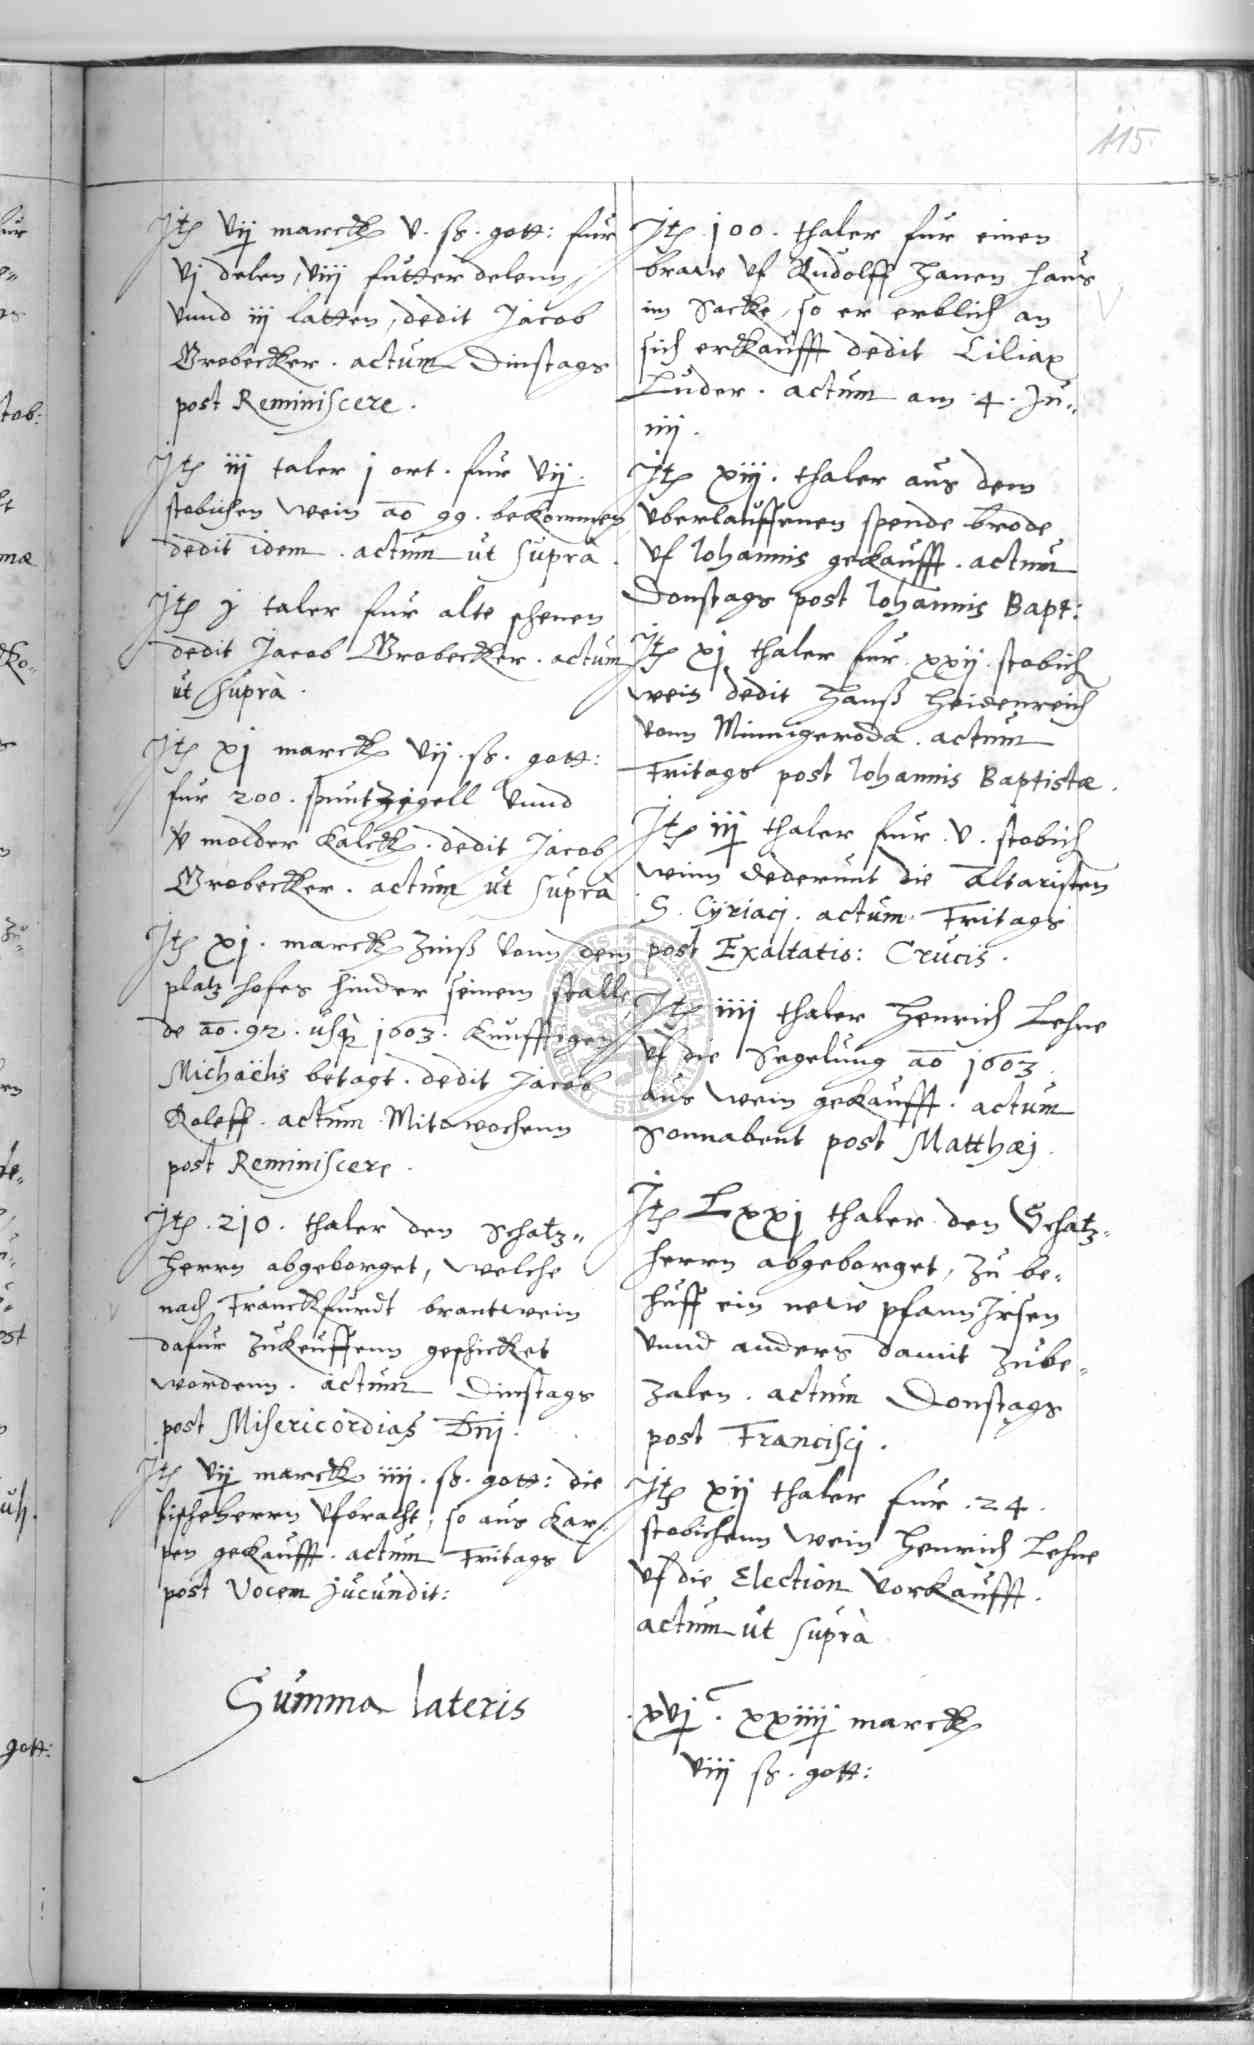 115.
Itē vij marck v. ß. gott: fur
vj delen, viij futter delenn,
vnnd iij latten, dedit Jacob
Grobecker. actum Dinstags
post Reminiscere.
Itē iij taler j ort. fur vij.
stobichen wein ao 99. bekommen
dedit idem. actum ut suprà.
Itē j taler fur alte schenen
dedit Jacob Grobecker. actum
ut suprà.
Itē xj marck vij. ß. gott:
fur 200. spuntzigell vnnd
v molder Kalck. dedit Jacob
Grobecker. actum ut suprà
Itē xj. marck Zinß vonn dem
platz hofes hinder seinem stalle
de ao. 92. usq 1603. Kunfftigen
Michaëlis betagt. dedit Jacob
Roleff. actum Mitwochenn
post Reminiscere.
Itē. 210. thaler den Schatz"
herrn abgeborget, welche
nach Franckfurdt brantwein
dafur zukeuffenn geschicket
wordenn. actum Dinstags
post Misericordias Dnj.
Itē vij marck iiij. ß. gott: die
fischeherrn vfbracht, so aus Kar,
pen gekaufft. actum Fritags
post Vocem jucundit:
Summa lateris
Itē. 100. thaler fur einen
braw vf Rudolff Hanen haus
im Sacke, so er erblich an
sich erkaufft dedit Ciliax
Luder. actum am. 4. Ju"
nij.
Itē xiij. thaler aus dem
vberlauffenen spende brode
vf Iohannis gekaufft. actum
Donstags post Iohannis Bapt:
Itē xj thaler fur. xxij. stobich
wein dedit Hanß Heidenreich
vonn Minnigeroda. actum
Fritags post Iohannis Baptistæ.
Itē iij thaler fur. v. stobich
winn dederunt die Altaristen
S. Cyriaci. actum. Fritags
post Exaltatio: Crucis.
Itē iiij thaler Henrich Lehne
vf die Segelung ao 1603
aus wein gekaufft. actum
Sonnabent post Matthæj.
Itē Lxxj thaler den Schatz"
herrn abgeborget, zu be"
huff ein new pfann Jrsen
vnnd anders damit zube"
zalen. actum Donstags
post Francisci.
Itē xij thaler fur. 24.
stobichenn wein Henrich Lehne
vf die Election vorkaufft.
actum ut suprà
xvj c. xxiiij marck
viij ß. gott: